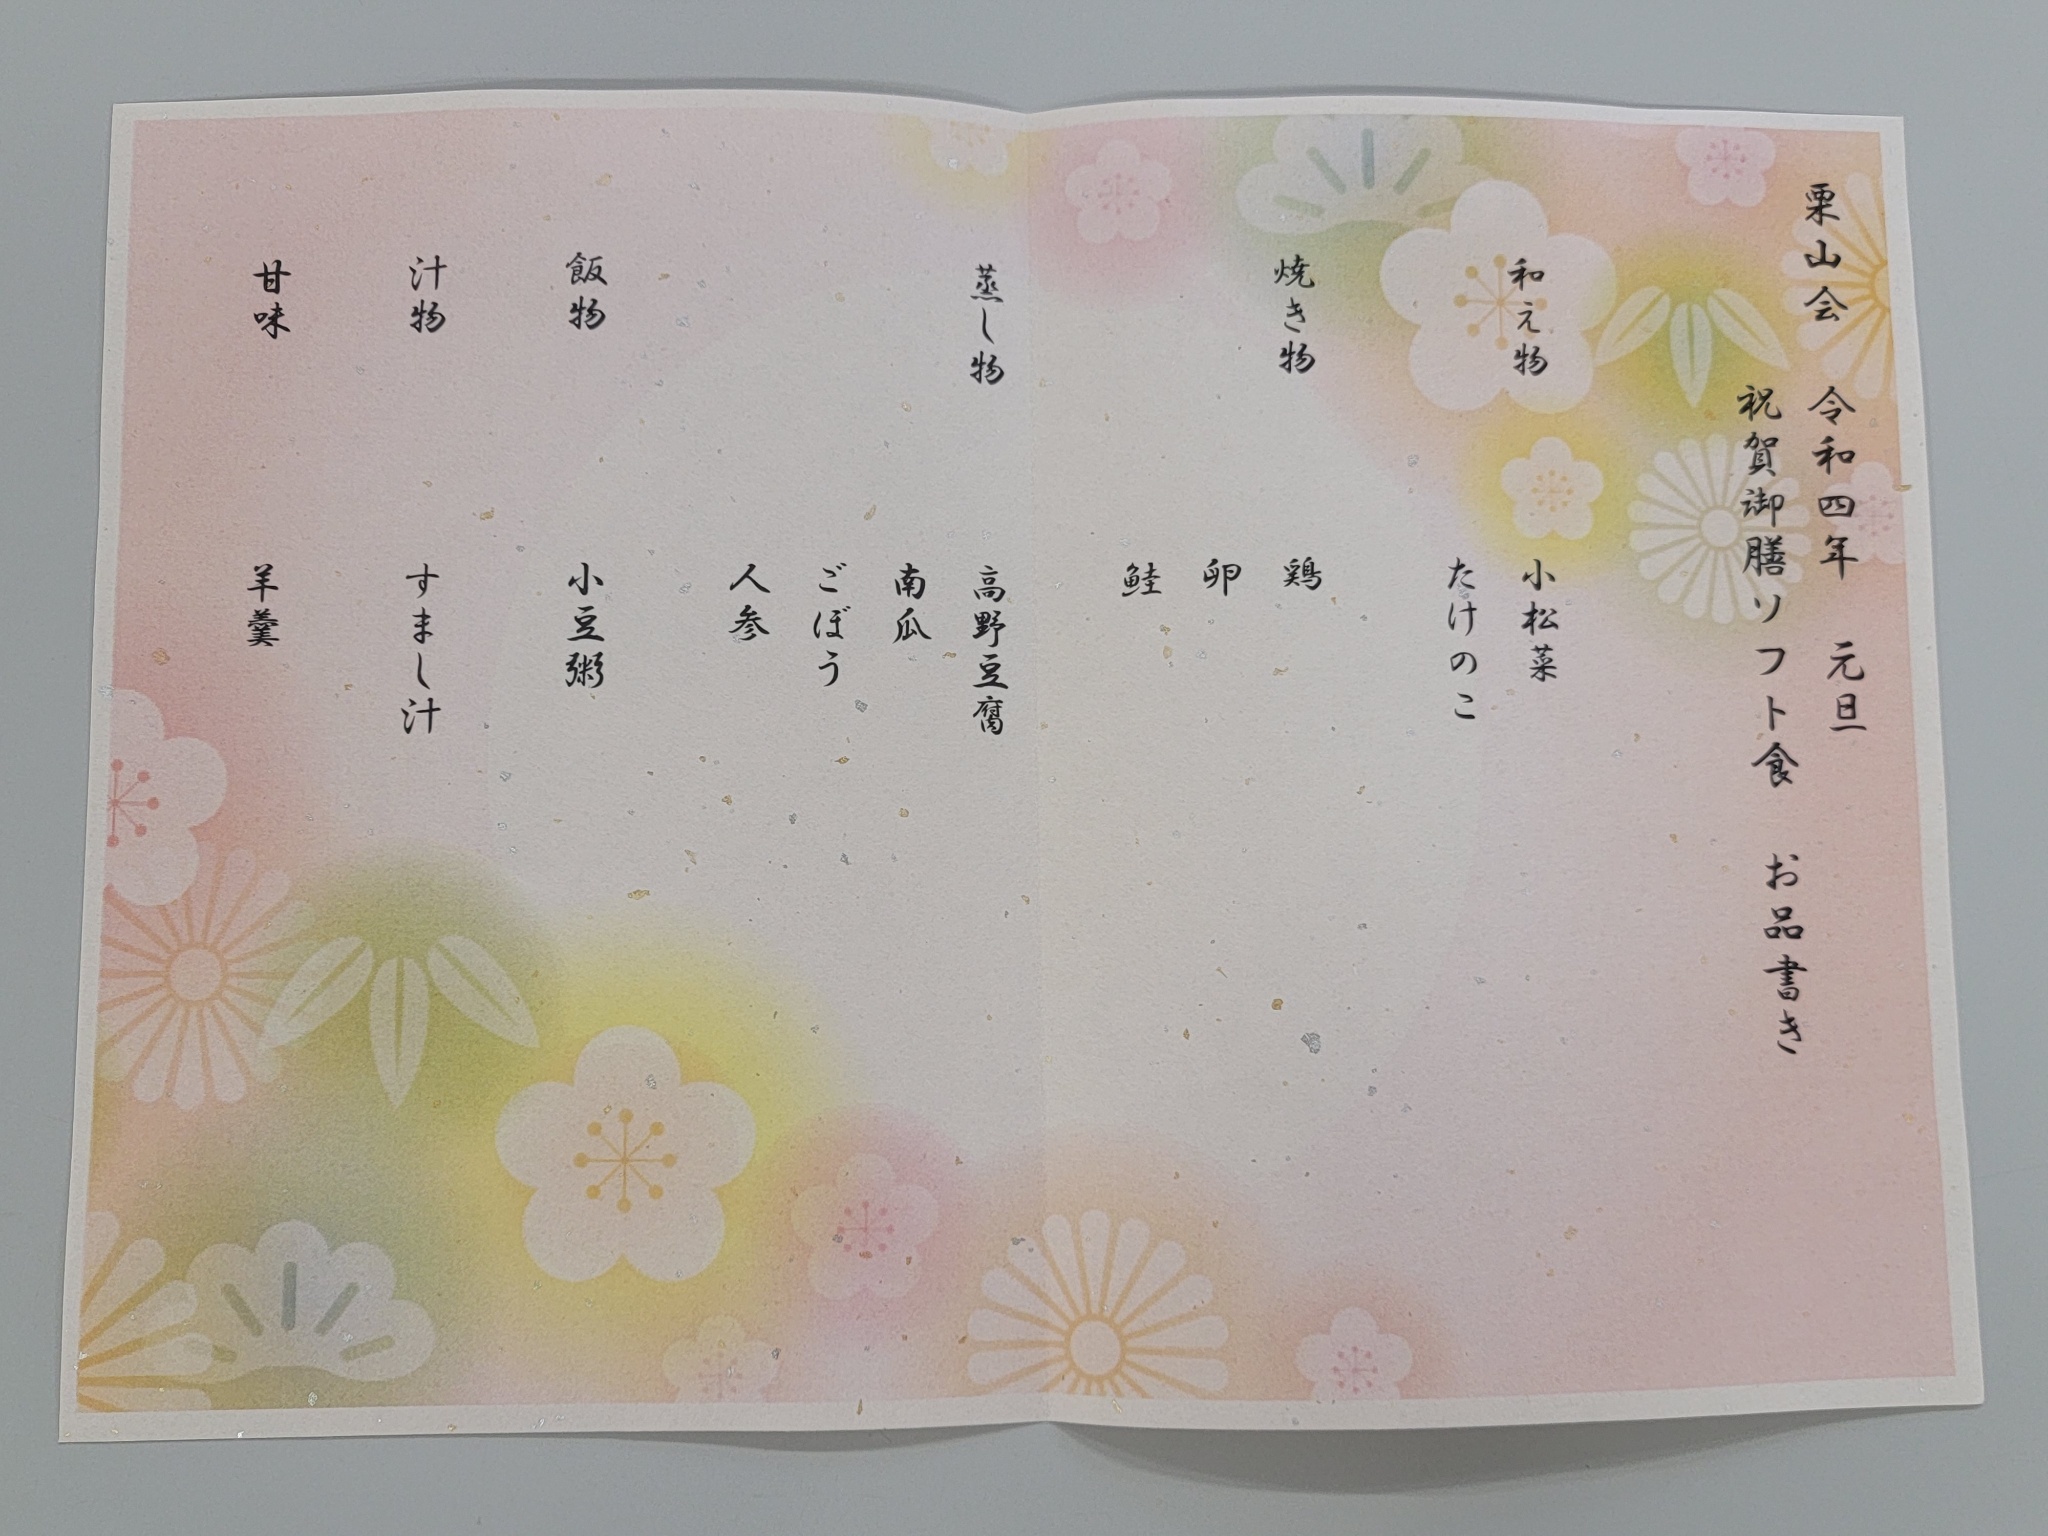 栗山会　令和四年　元旦
祝賀御膳ソフト食　お品書き
和え物　小松菜
たけのこ
焼き物　鶏
卵
鮭
蒸し物　高野豆腐
南瓜
ごぼう
人参
飯物　小豆粥
汁物　すまし汁
甘味　羊羹